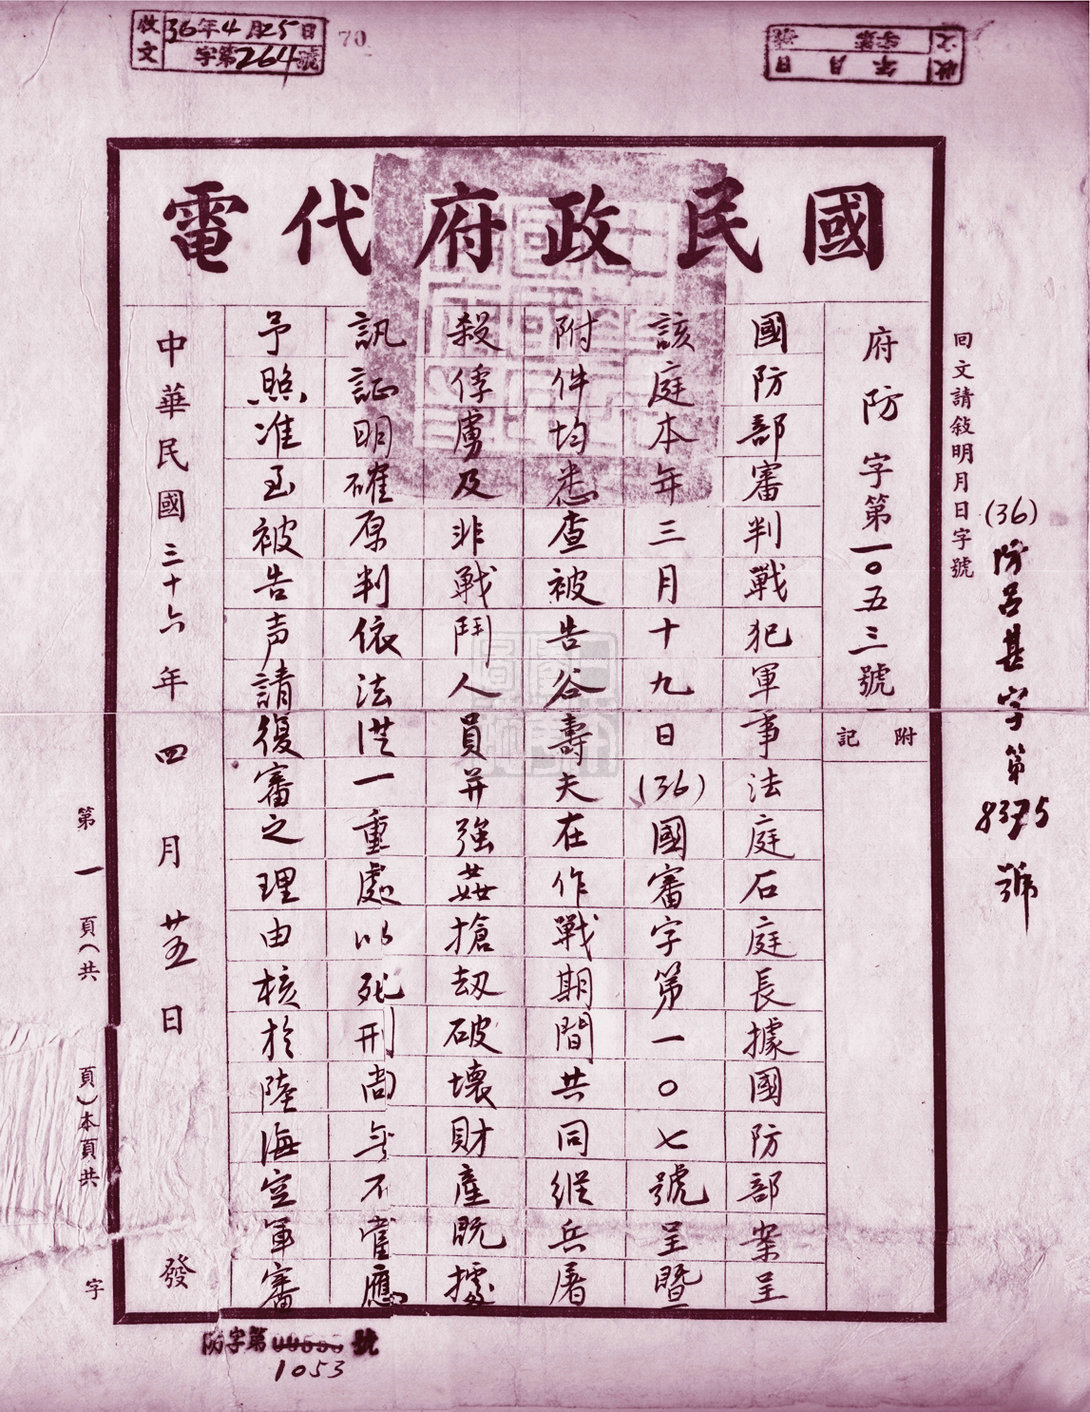 收文 36年4月25日
字第264號
70
收文 年 月 日
字第 號
國民政府代電
回文請敍明月日字號
(36)防呂甚字第8375號
府防字第一〇五三號
附記
國防部審判戰犯軍事法庭石庭長據國防部案呈
該庭本年三月十九日(36)國審字第一〇七號呈暨
附件均悉查被告谷壽夫在作戰期間共同縱兵屠
殺俘虜及非戰鬥人員并強姦搶劫破壞財產既據
訊証明確原判依法從一重處以死刑尚無不當應
予照准至被告声請復審之理由核於陸海空軍審
中華民國三十六年四月廿五日發
第一頁(共 頁)本頁共 字
防字第 號
1053